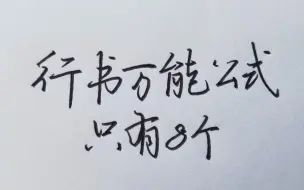 行书万能公式
只有8个